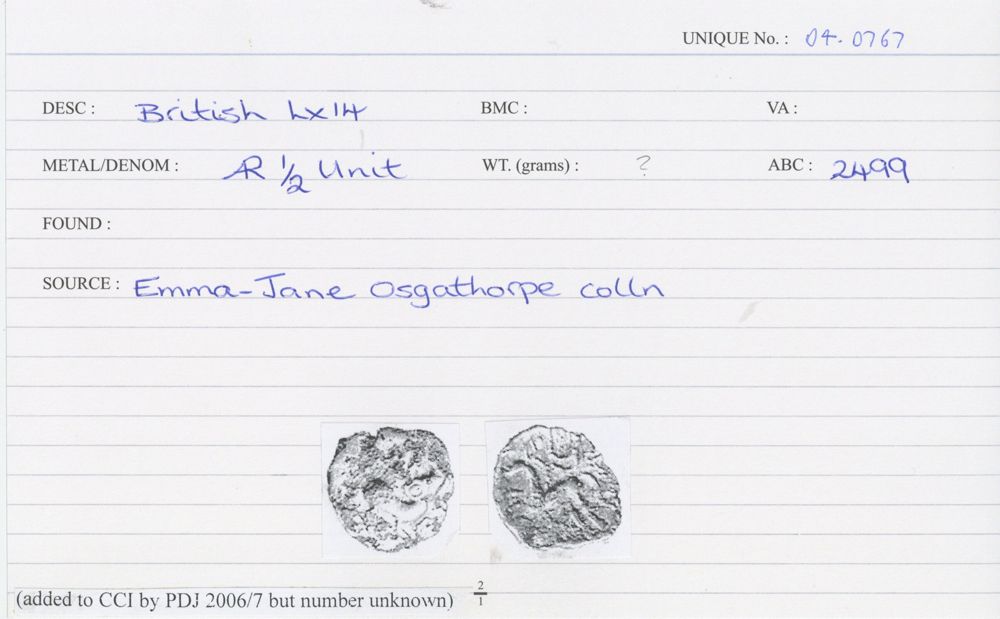 UNIQUE No. : 04.0767
DESC : British Lx14 BMC : VA :
METAL/DENOM : AR 1/2 Unit WT. (grams) : ? ABC : 2499
FOUND :
SOURCE : Emma-Jane Osgathorpe colln
(added to CCI by PDJ 2006/7 but number unknown) 2/1